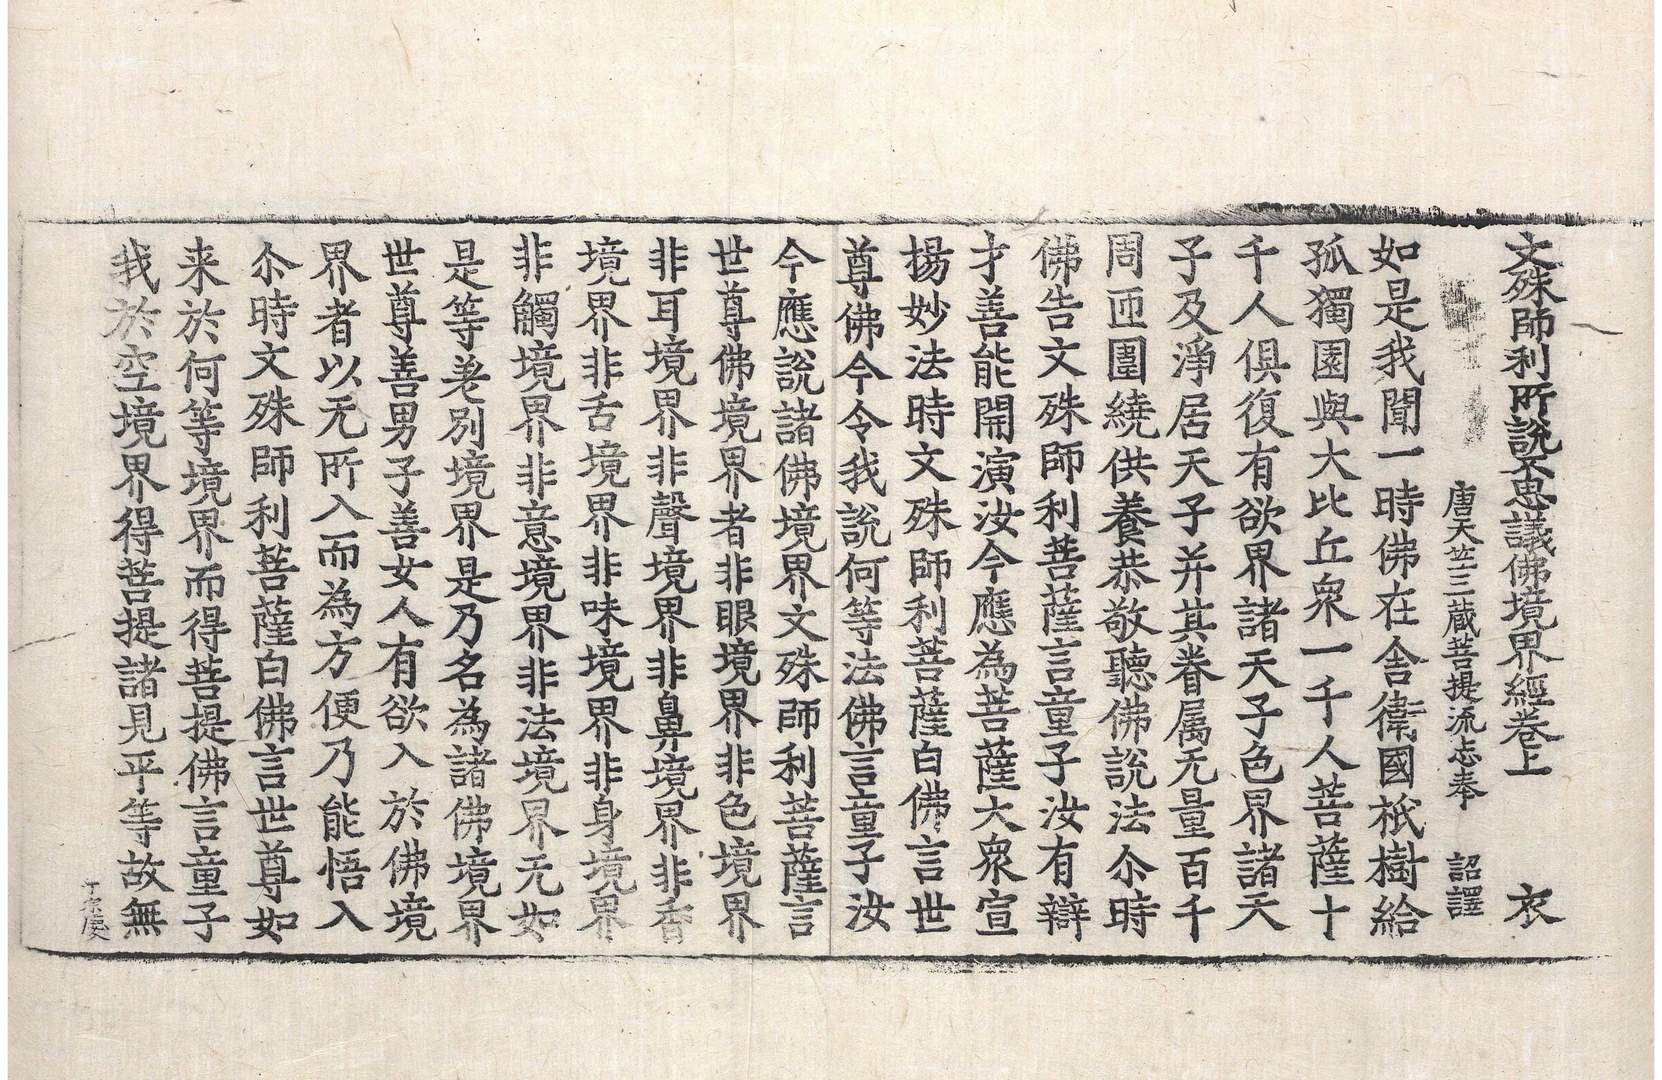 文殊師利所說不思議佛境界經卷上　衣
唐天竺三蔵菩提流志奉　詔譯
如是我聞一時佛在舎衛國祇樹給
孤獨園與大比丘衆一千人菩薩十
千人俱復有欲界諸天子色界諸天
子及淨居天子并其眷属无量百千
周匝圍繞供養恭敬聽佛說法尒時
佛告文殊師利菩薩言童子汝有辯
才善能開演汝今應為菩薩大衆宣
揚妙法時文殊師利菩薩白佛言世
尊佛今令我說何等法佛言童子汝
今應說諸佛境界文殊師利菩薩言
世尊佛境界者非眼境界非色境界
非耳境界非聲境界非鼻境界非香
境界非舌境界非味境界非身境界
非觸境界非意境界非法境界无如
是等差別境界是乃名為諸佛境界
世尊善男子善女人有欲入於佛境
界者以无所入而為方便乃能悟入
尒時文殊師利菩薩白佛言世尊如
来於何等境界而得菩提佛言童子
我於空境界得菩提諸見平等故無